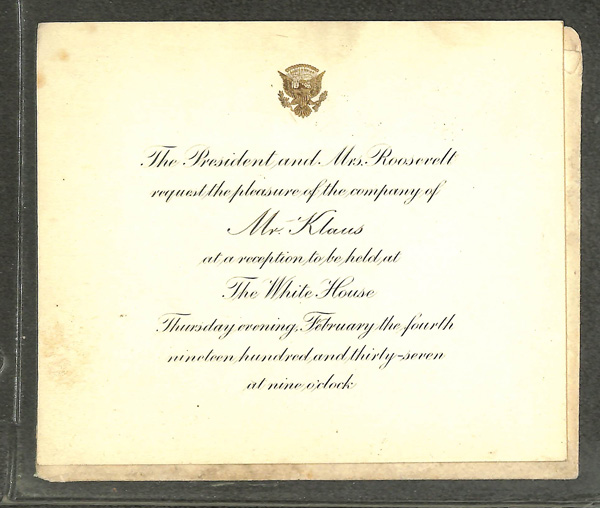 The President and Mrs. Roosevelt
request the pleasure of the company of
Mr. Klaus
at a reception to be held at
The White House
Thursday evening, February the fourth
nineteen hundred and thirty-seven
at nine o'clock